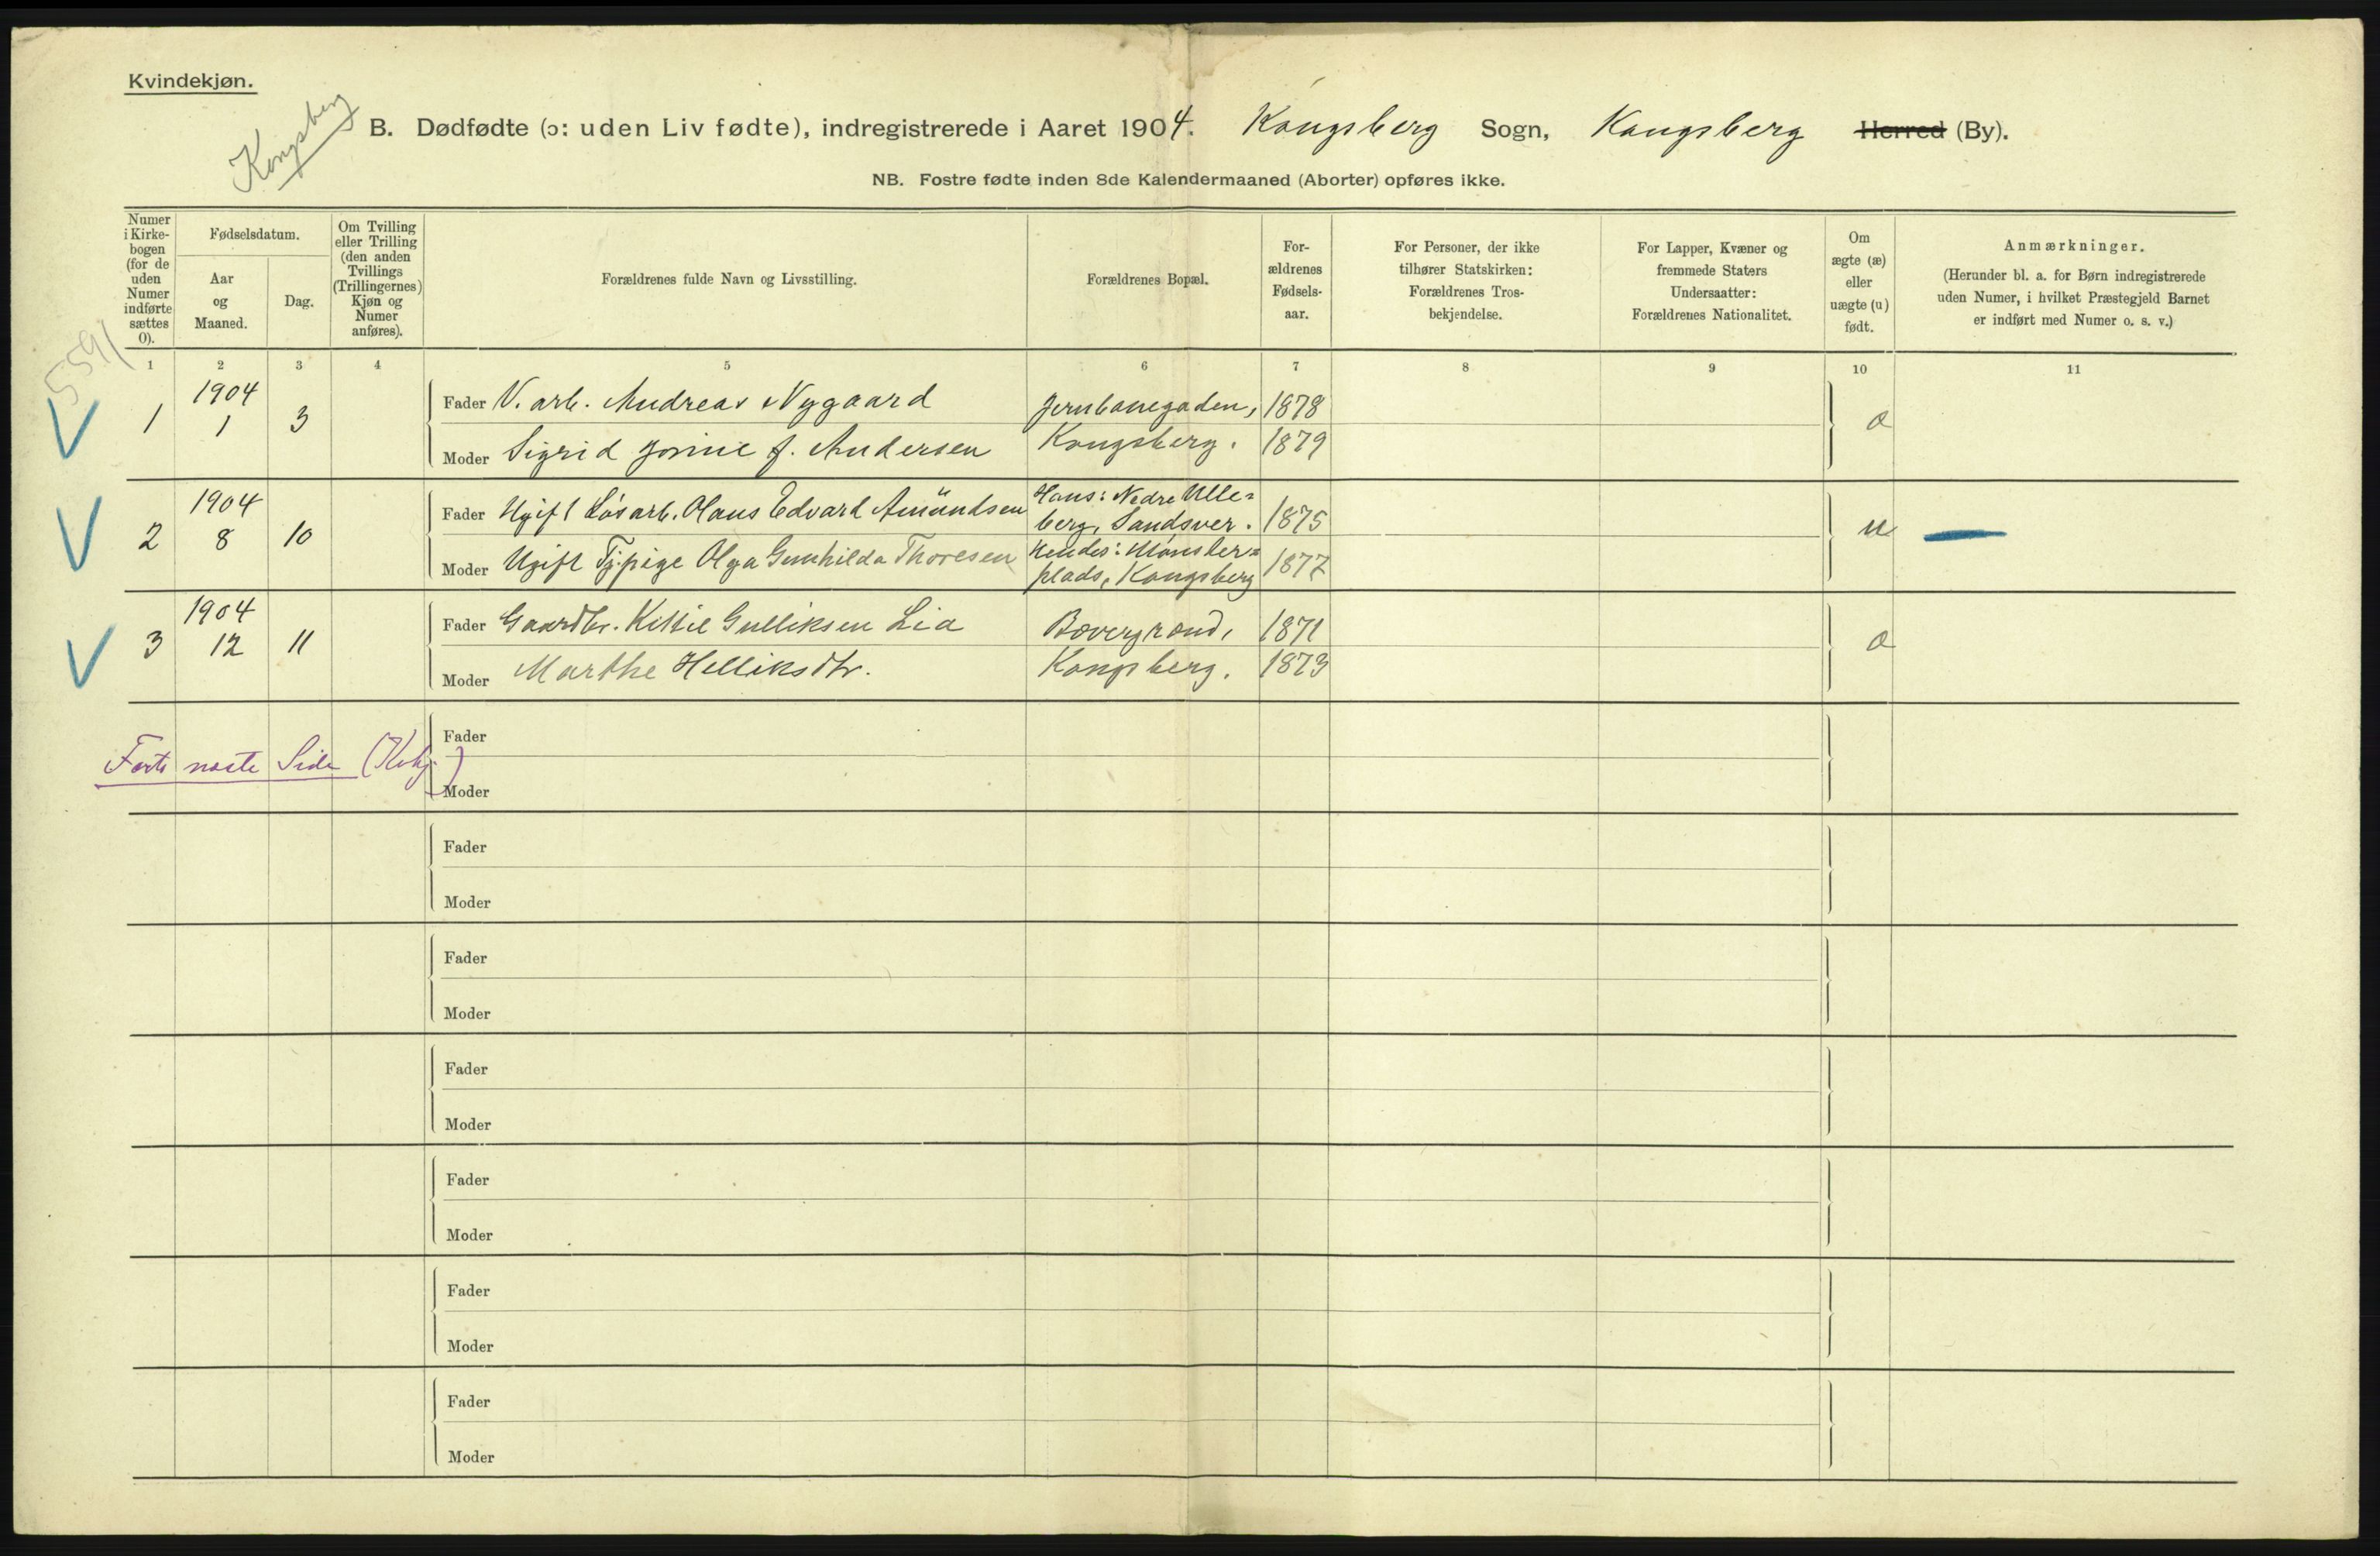 Kvindekjøn.
Kongsberg
B. Dødfødte (ɔ: uden Liv fødte), indregistrerede i Aaret 1904. Kongsberg Sogn, Kongsberg Herred (By).
NB. Fostre fødte inden 8de Kalendermaaned (Aborter) opføres ikke.
Numer
i Kirke-
bogen
(for de
uden
Numer
indførte
sættes
0).
Fødselsdatum.
Aar
og
Maaned.
Dag.
Om Tvilling
eller Trilling
(den anden
Tvillings
(Trillingernes)
Kjøn og
Numer
anføres).
Forældrenes fulde Navn og Livsstilling.
Forældrenes Bopæl.
For-
ældrenes
Fødsels-
aar.
For Personer, der ikke
tilhører Statskirken:
Forældrenes Tros-
bekjendelse.
For Lapper, Kvæner og
fremmede Staters
Undersaatter:
Forældrenes Nationalitet.
Om
ægte (æ)
eller
uægte (u)
født.
Anmærkninger.
(Herunder bl. a. for Børn indregistrerede
uden Numer, i hvilket Præstegjeld Barnet
er indført med Numer o. s. v.)
5591
1 2 3 4 5 6 7 8 9 10 11
V 1 1904 1 3
Fader V. arb. Andreas Nygaard Jernbanegaden, 1878
Moder Sigrid Josine f. Andersen Kongsberg. 1879
æ
V 2 1904 8 10
Fader Ugift Løsarb. Olaus Edvard Amundsen Hans: Nedre Ulle-
berg, Sandsver. 1875
Moder Ugift Tj.pige Olga Gunhilda Thoresen Hendes: 
plads, Kongsberg 1877
u —
V 3 1904 12 11
Fader Gaardbr. Kittil Gulliksen Lia 1871
Moder Marthe Helliksdtr. Kongsberg. 1873
æ
Forts næste Side
Fader
Moder
Fader
Moder
Fader
Moder
Fader
Moder
Fader
Moder
Fader
Moder
Fader
Moder